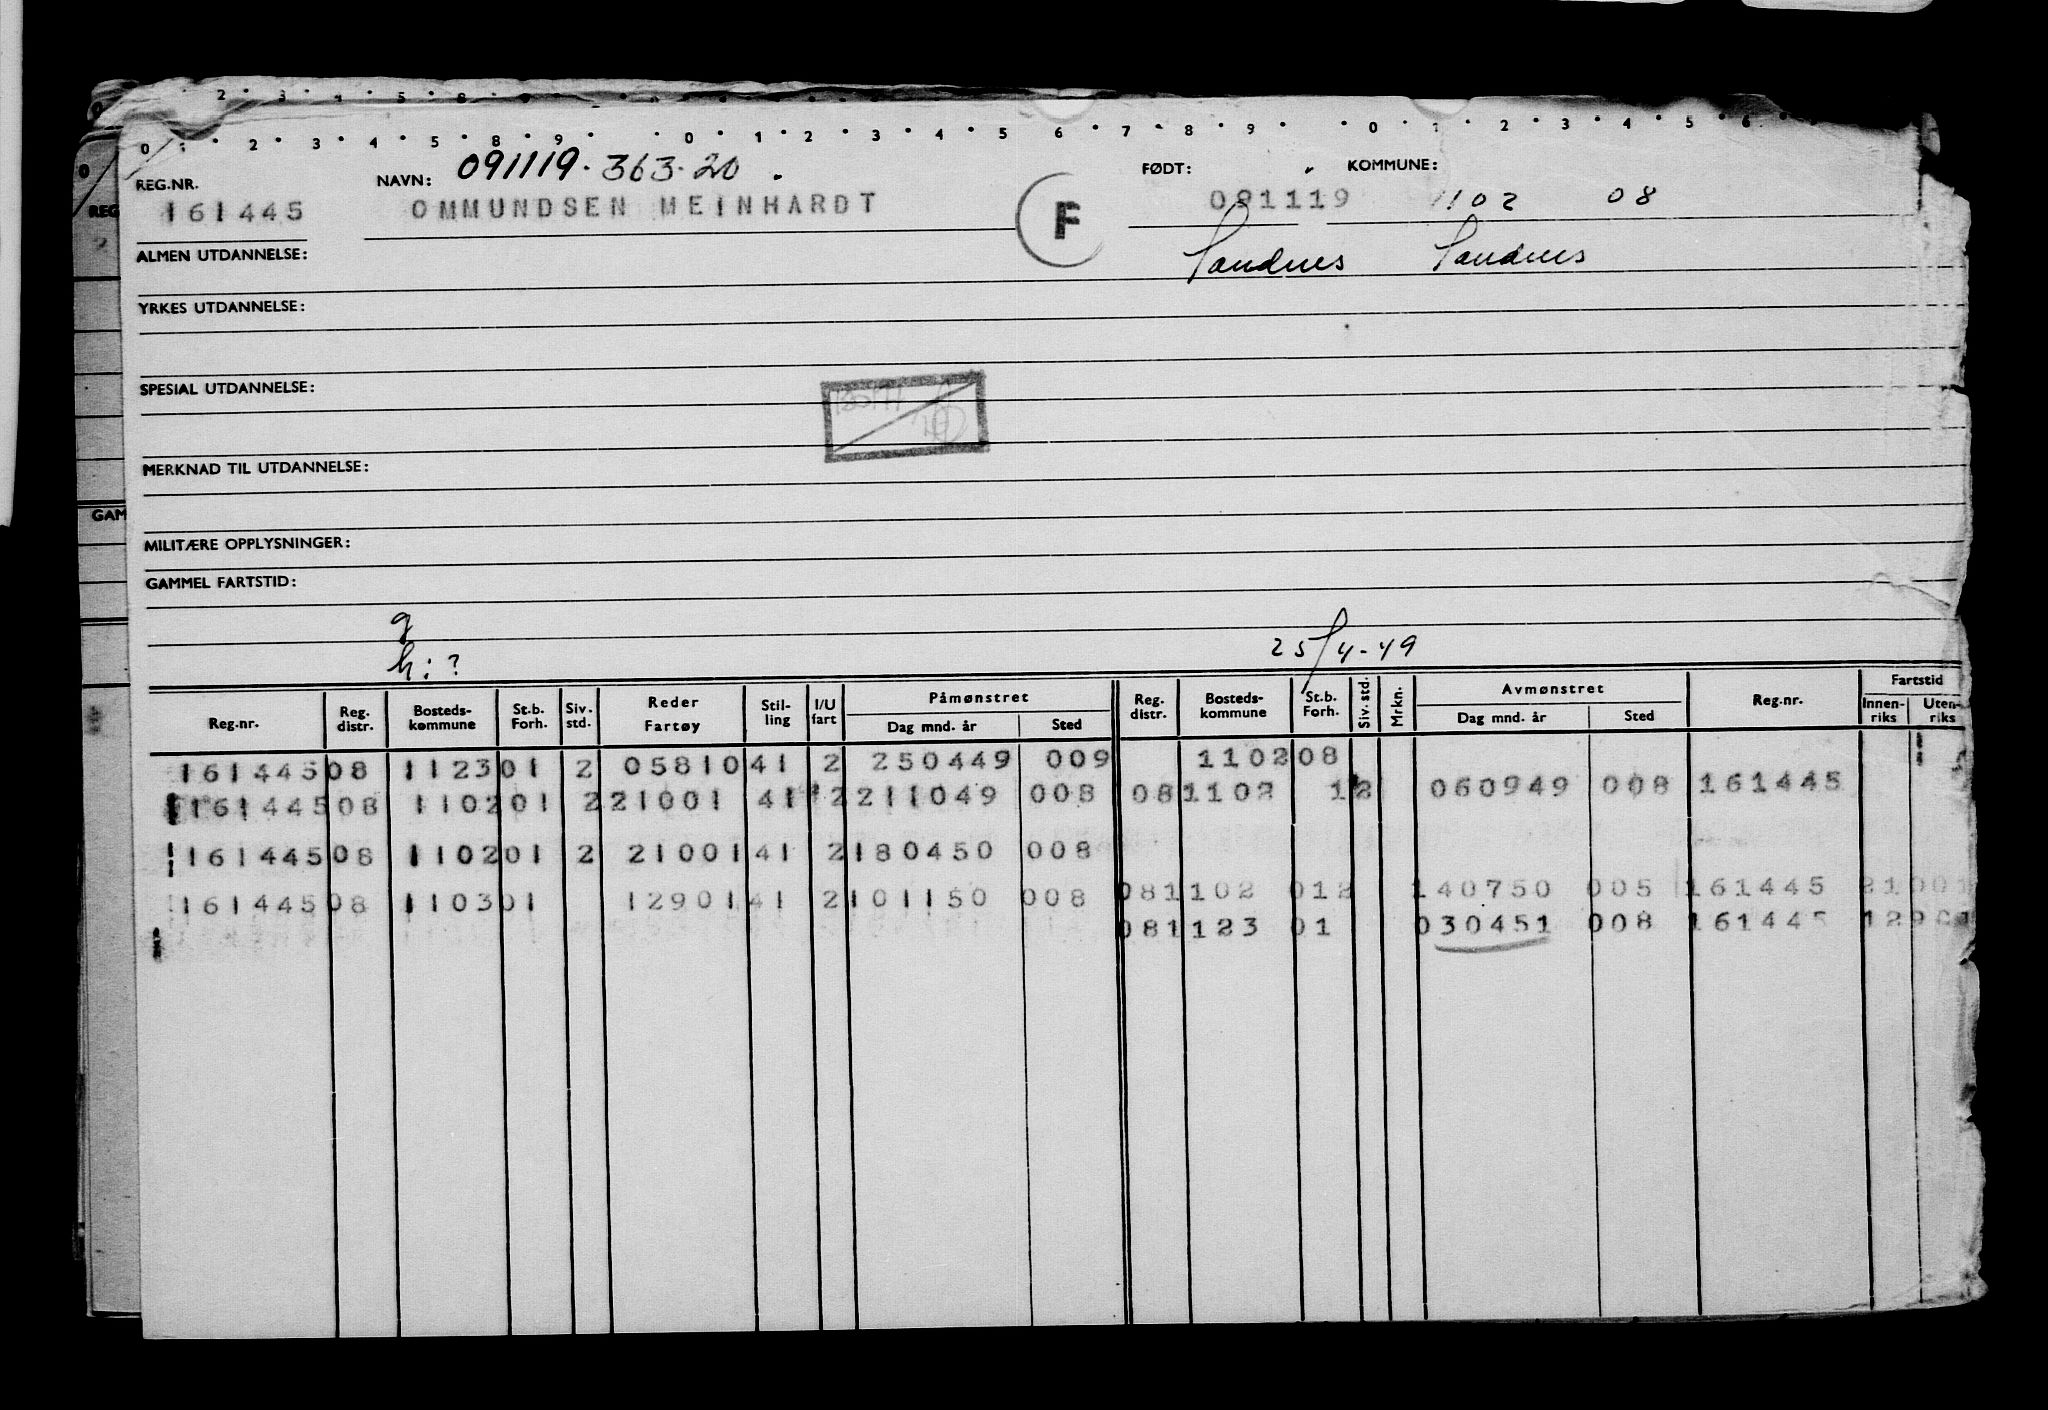 2 3 4 5 8 9
0 2 3 4 5 8 9 0 1 2 3 4 5 6 7 8 9 0 1 2 3 4 5 6
REG.NR. NAVN: 091119.363.20. FØDT: KOMMUNE:
161445 OMMUNDSEN MEINHARDT F 091119 1102 08
ALMEN UTDANNELSE: Sandnes Sandnes
YRKES UTDANNELSE:
SPESIAL UTDANNELSE:
MERKNAD TIL UTDANNELSE:
MILITÆRE OPPLYSNINGER:
GAMMEL FARTSTID:
g
h:? 25/4-49
Reg.nr. Reg. distr. Bosteds-kommune St.b. Forh. Siv. std. Reder Fartøy Stil-ling I/U fart Påmønstret Dag mnd. år Sted Reg. distr. Bosteds-kommune St.b. Forh. Siv. std. Mrkn. Avmønstret Dag mnd. år Sted Reg.nr. Fartstid Innen-riks Uten-riks
161445 08 1123 01 2 05810 41 2 250449 009 1102 08
161445 08 1102 01 2 21001 41 2 211049 008 08 1102 1 2 060949 008 161445
161445 08 1102 01 2 21001 41 2 180450 008
161445 08 1103 01 12901 41 2 101150 008 08 1102 01 2 140750 005 161445 21001
08 1123 01 030451 008 161445 12901
REG
GAM